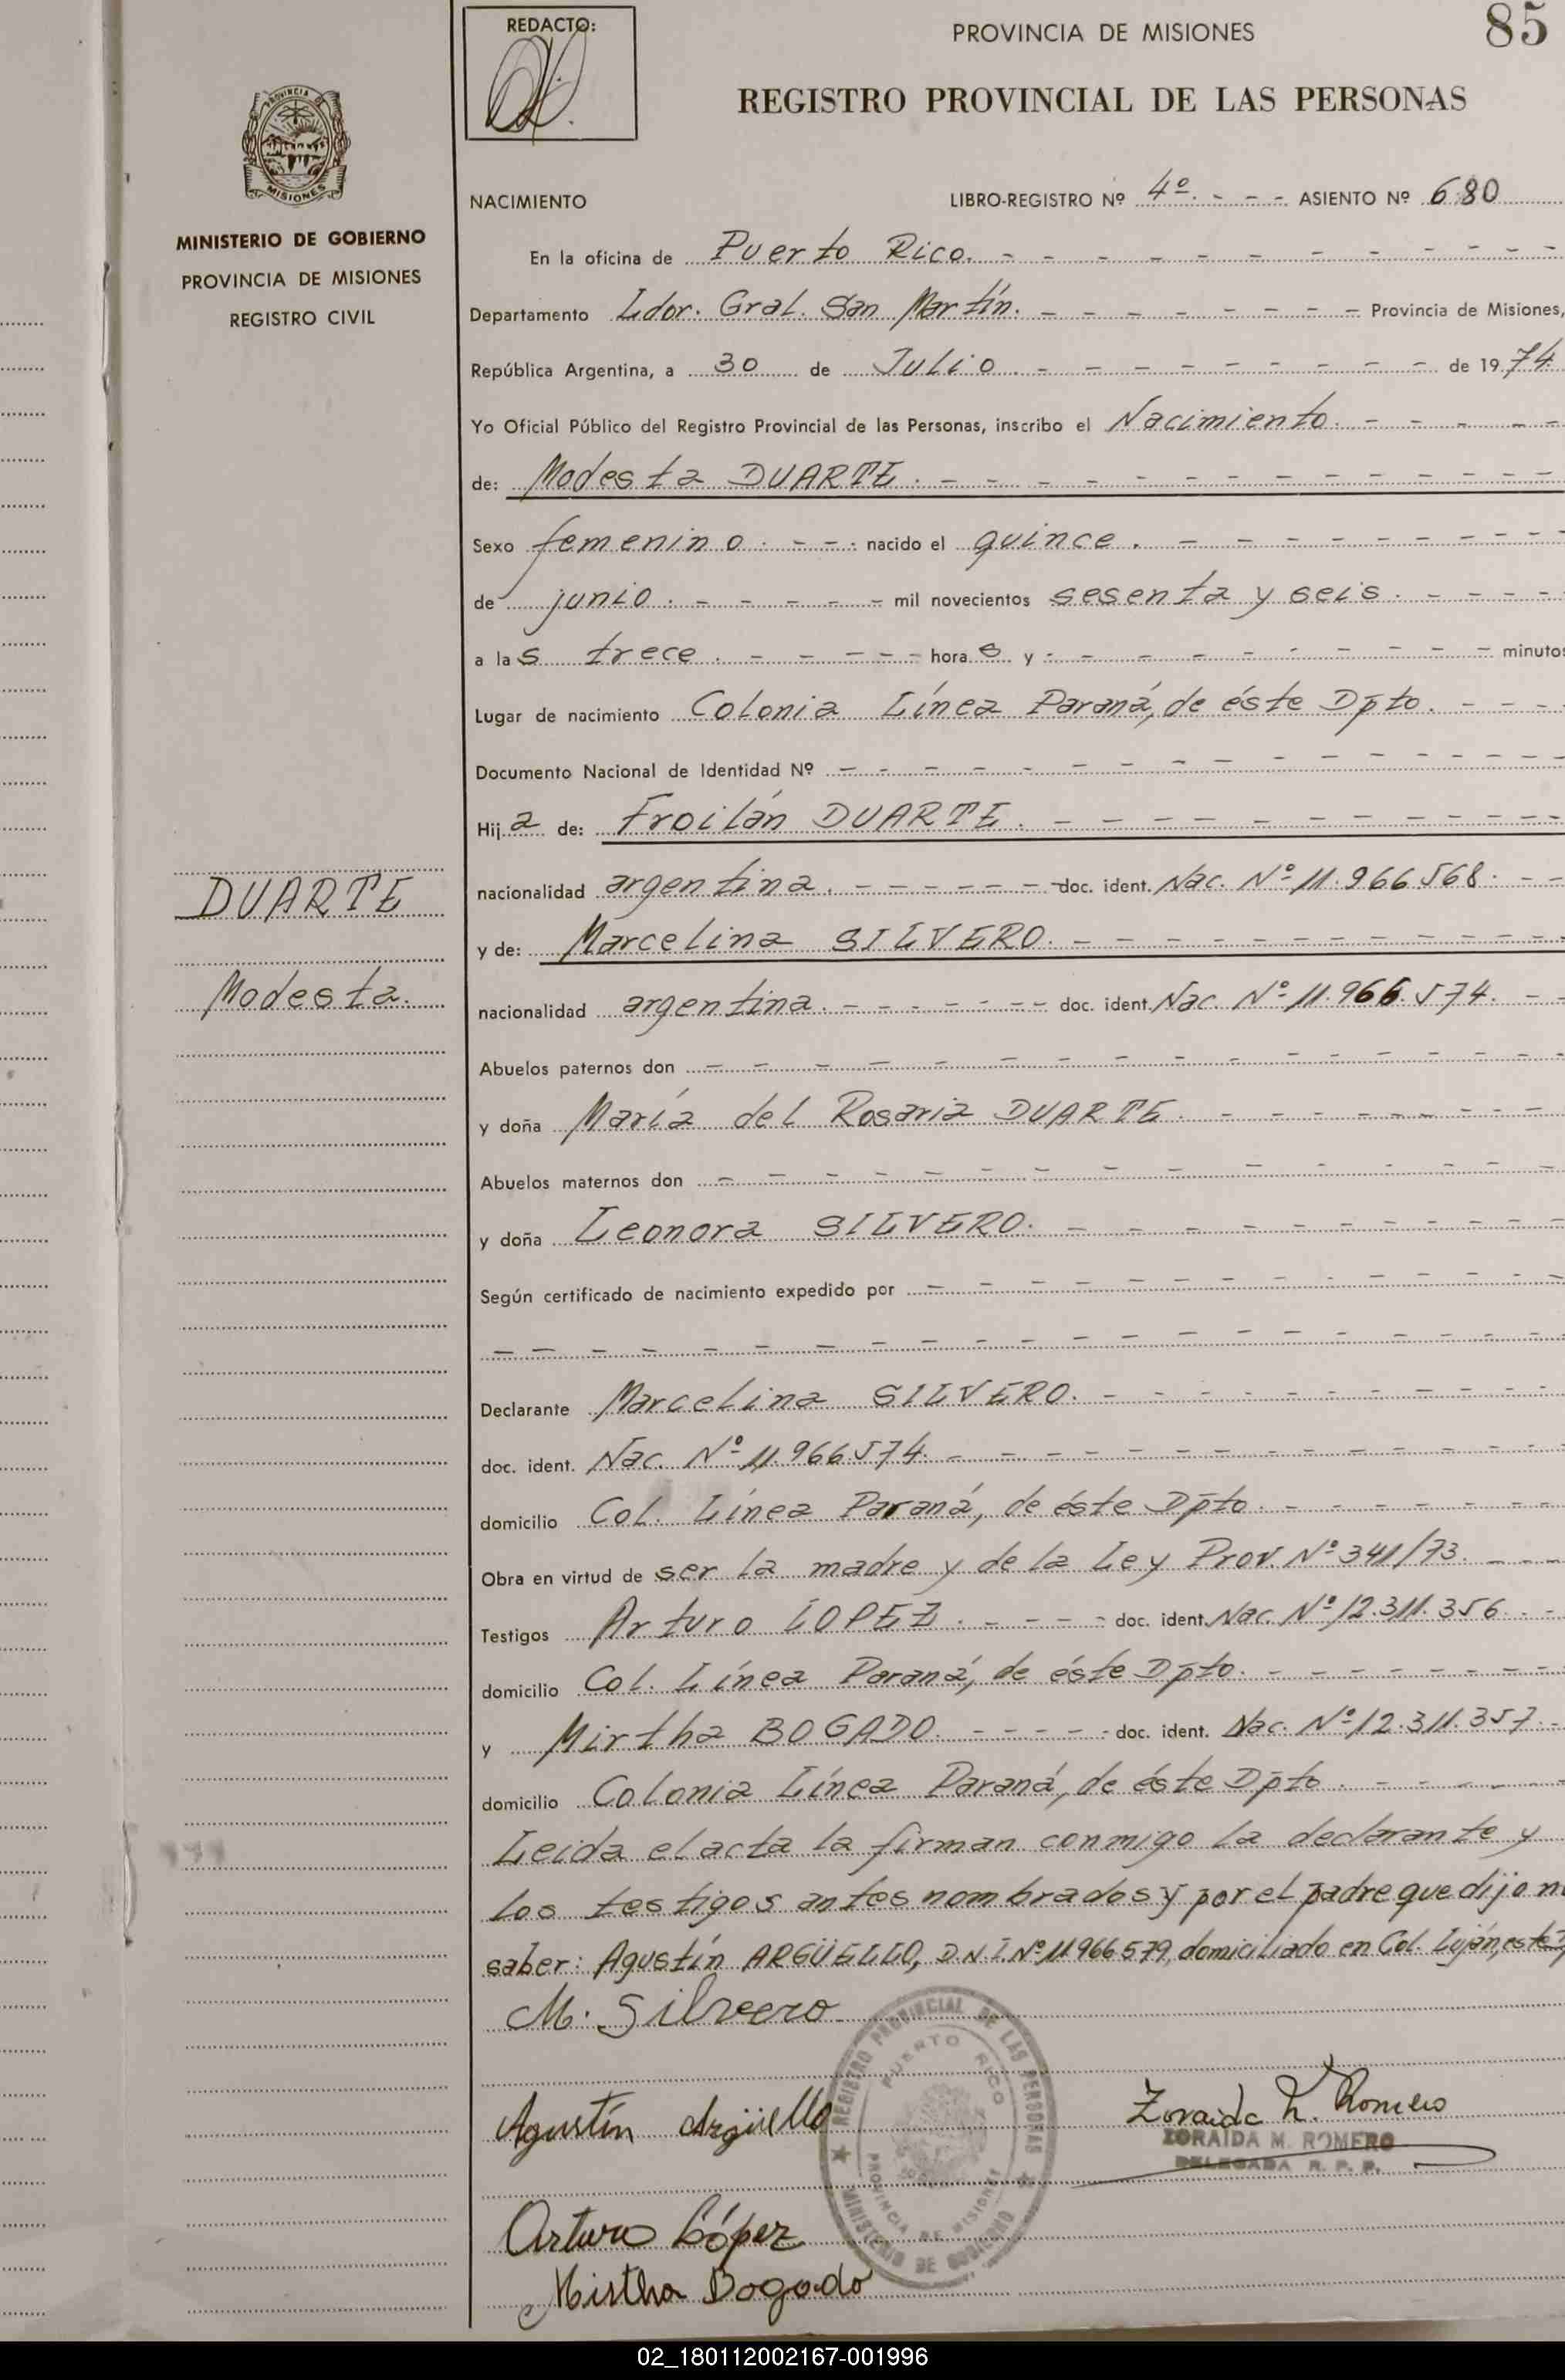 REDACTO:
PROVINCIA DE MISIONES
85
REGISTRO PROVINCIAL DE LAS PERSONAS
PROVINCIA DE
MISIONES
MINISTERIO DE GOBIERNO
PROVINCIA DE MISIONES
REGISTRO CIVIL
NACIMIENTO LIBRO-REGISTRO Nº 4º. - - - ASIENTO Nº 680
En la oficina de Puerto Rico. - - - - - - - - - -
Departamento Ldor. Gral. San Martín. - - - - - - - - Provincia de Misiones,
República Argentina, a 30 de Julio. - - - - - - - - - de 1974
Yo Oficial Público del Registro Provincial de las Personas, inscribo el Nacimiento. - - - - -
de: Modesta DUARTE. - - - - - - - - - - - -
Sexo femenino. - - - nacido el quince. - - - - - - - - -
de junio. - - - - - mil novecientos sesenta y seis. - - - -
a las trece. - - - - - horas y - - - - - - - - - - minutos
Lugar de nacimiento Colonia Línea Paraná, de éste Dpto. - - -
Documento Nacional de Identidad Nº - - - - - - - - - - - - -
Hija de: Froilán DUARTE. - - - - - - - - - - - -
DUARTE
nacionalidad argentina. - - - - - - doc. ident. Nac. Nº 11.966.568. - -
y de: Marcelina SILVERO. - - - - - - - - - - -
Modesta.
nacionalidad argentina. - - - - - - - doc. ident. Nac. Nº 11.966.574. - -
Abuelos paternos don - - - - - - - - - - - - - -
y doña María del Rosaria DUARTE. - - - - - - - -
Abuelos maternos don - - - - - - - - - - - - -
y doña Leonora SILVERO. - - - - - - - - - -
Según certificado de nacimiento expedido por - - - - - - - - - - - -
- - - - - - - - - - - - - - - - - - - -
Declarante Marcelina SILVERO. - - - - - - - - - -
doc. ident. Nac. Nº 11.966.574. - - - - - - - - - - - - -
domicilio Col. Línea Paraná, de éste Dpto. - - - - - - -
Obra en virtud de ser la madre y de la Ley Prov. Nº 341/73. - - -
Testigos Arturo LOPEZ. - - - - doc. ident. Nac. Nº 12.311.356. - -
domicilio Col. Línea Paraná, de éste Dpto. - - - - - - - -
y Mirtha BOGADO. - - - - - doc. ident. Nac. Nº 12.311.357. -
domicilio Colonia Línea Paraná, de éste Dpto. - - - - -
Leida el acta la firman conmigo la declarante y
los testigos antes nombrados y por el padre que dijo n
saber: Agustín ARGÜELLO, D.N.I. Nº 11.966.579, domiciliado en Col. Luján, este D
M. Silveero
REGISTRO PROVINCIAL DE LAS PERSONAS
PUERTO RICO
PROVINCIA DE MISIONES
MINISTERIO DE GOBIERNO
Agustín Argüello
Zoraida M. Romero
ZORAIDA M. ROMERO
DELEGADA R. P. P.
Arturo López
Mirtha Bogado
02_180112002167-001996